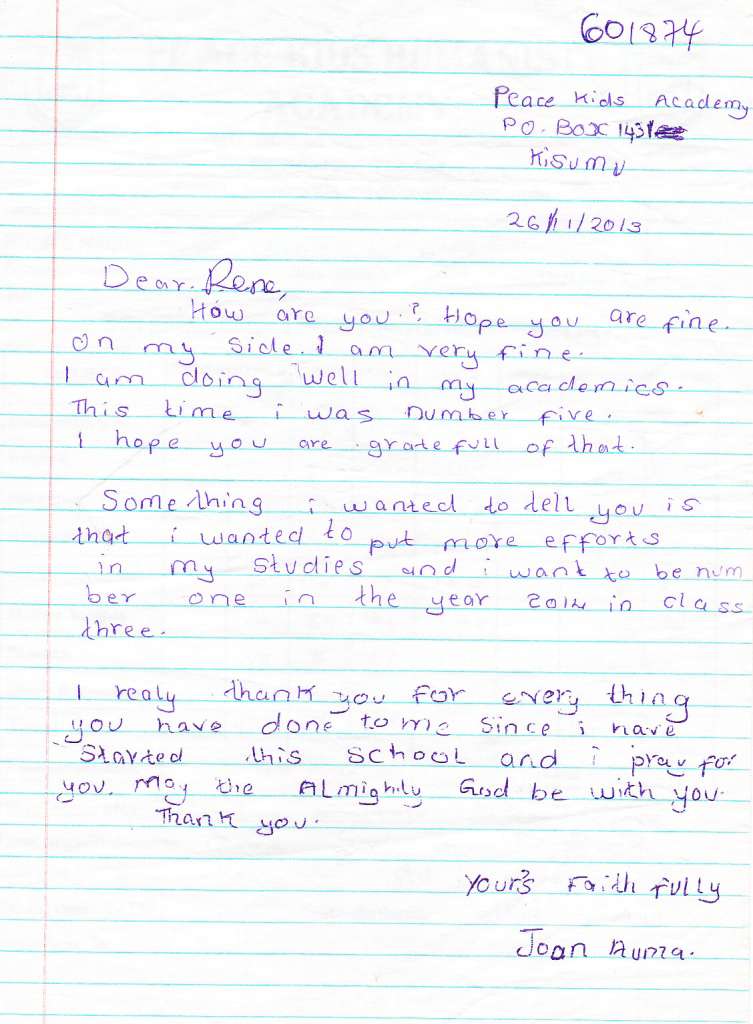 601874
Peace Kids Academy
P.O. Box 1431
Kisumu
26/11/2013
Dear. Rene,
How are you.? Hope you are fine.
On my side. I am very fine.
I am doing well in my academics.
This time i was number five.
I hope you are gratefull of that.
Something i wanted to tell you is
that i wanted to put more efforts
in my studies and i want to be num
ber one in the year 2014 in class
three.
I realy thank you for every thing
you have done to me since i have
started this school and i pray for
you. May the Almighty God be with you.
Thank you.
Your's Faith fully
Joan